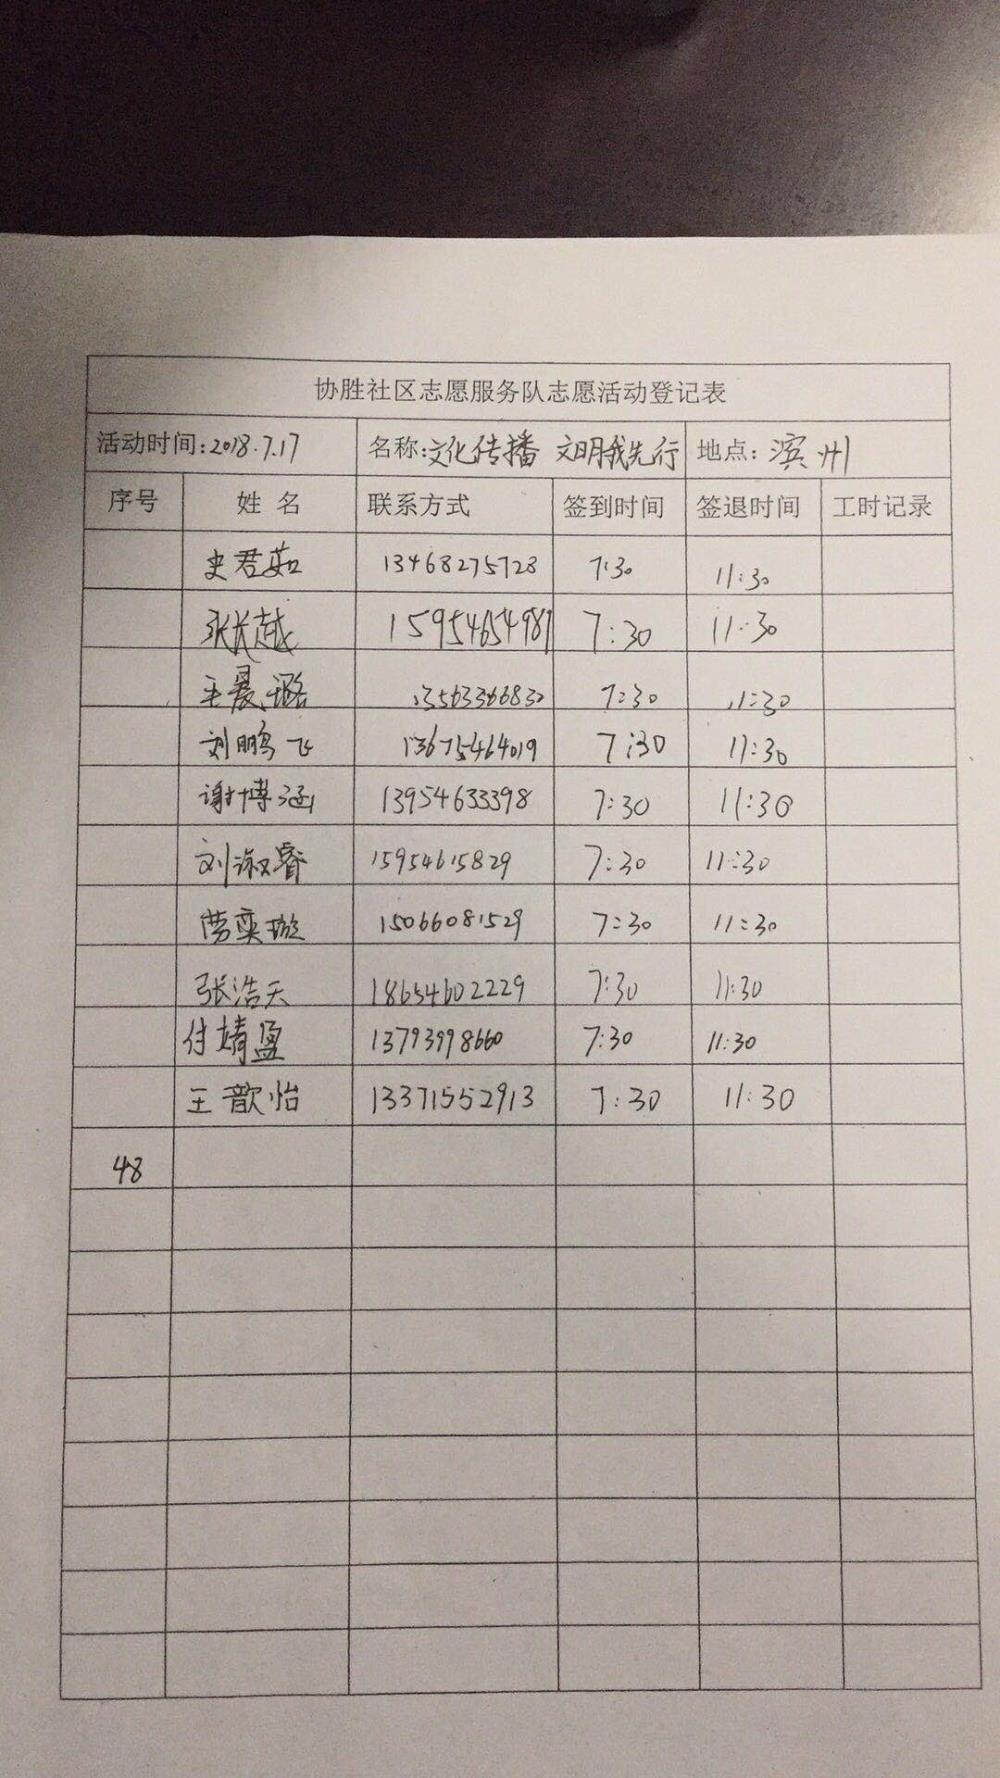 协胜社区志愿服务队志愿活动登记表
活动时间:2018.7.17 名称:文化传播 文明我先行 地点:滨州
序号 姓名 联系方式 签到时间 签退时间 工时记录
史君茹 13468275728 7:30 11:30
张长越 15954654987 7:30 11:30
王晨璐 13563366832 7:30 11:30
刘鹏飞 13675464019 7:30 11:30
谢博涵 13954633398 7:30 11:30
刘淑睿 15954615829 7:30 11:30
劳奕璇 15066081529 7:30 11:30
张浩天 18654602229 7:30 11:30
付婧盈 13793998660 7:30 11:30
王歆怡 13371552913 7:30 11:30
48